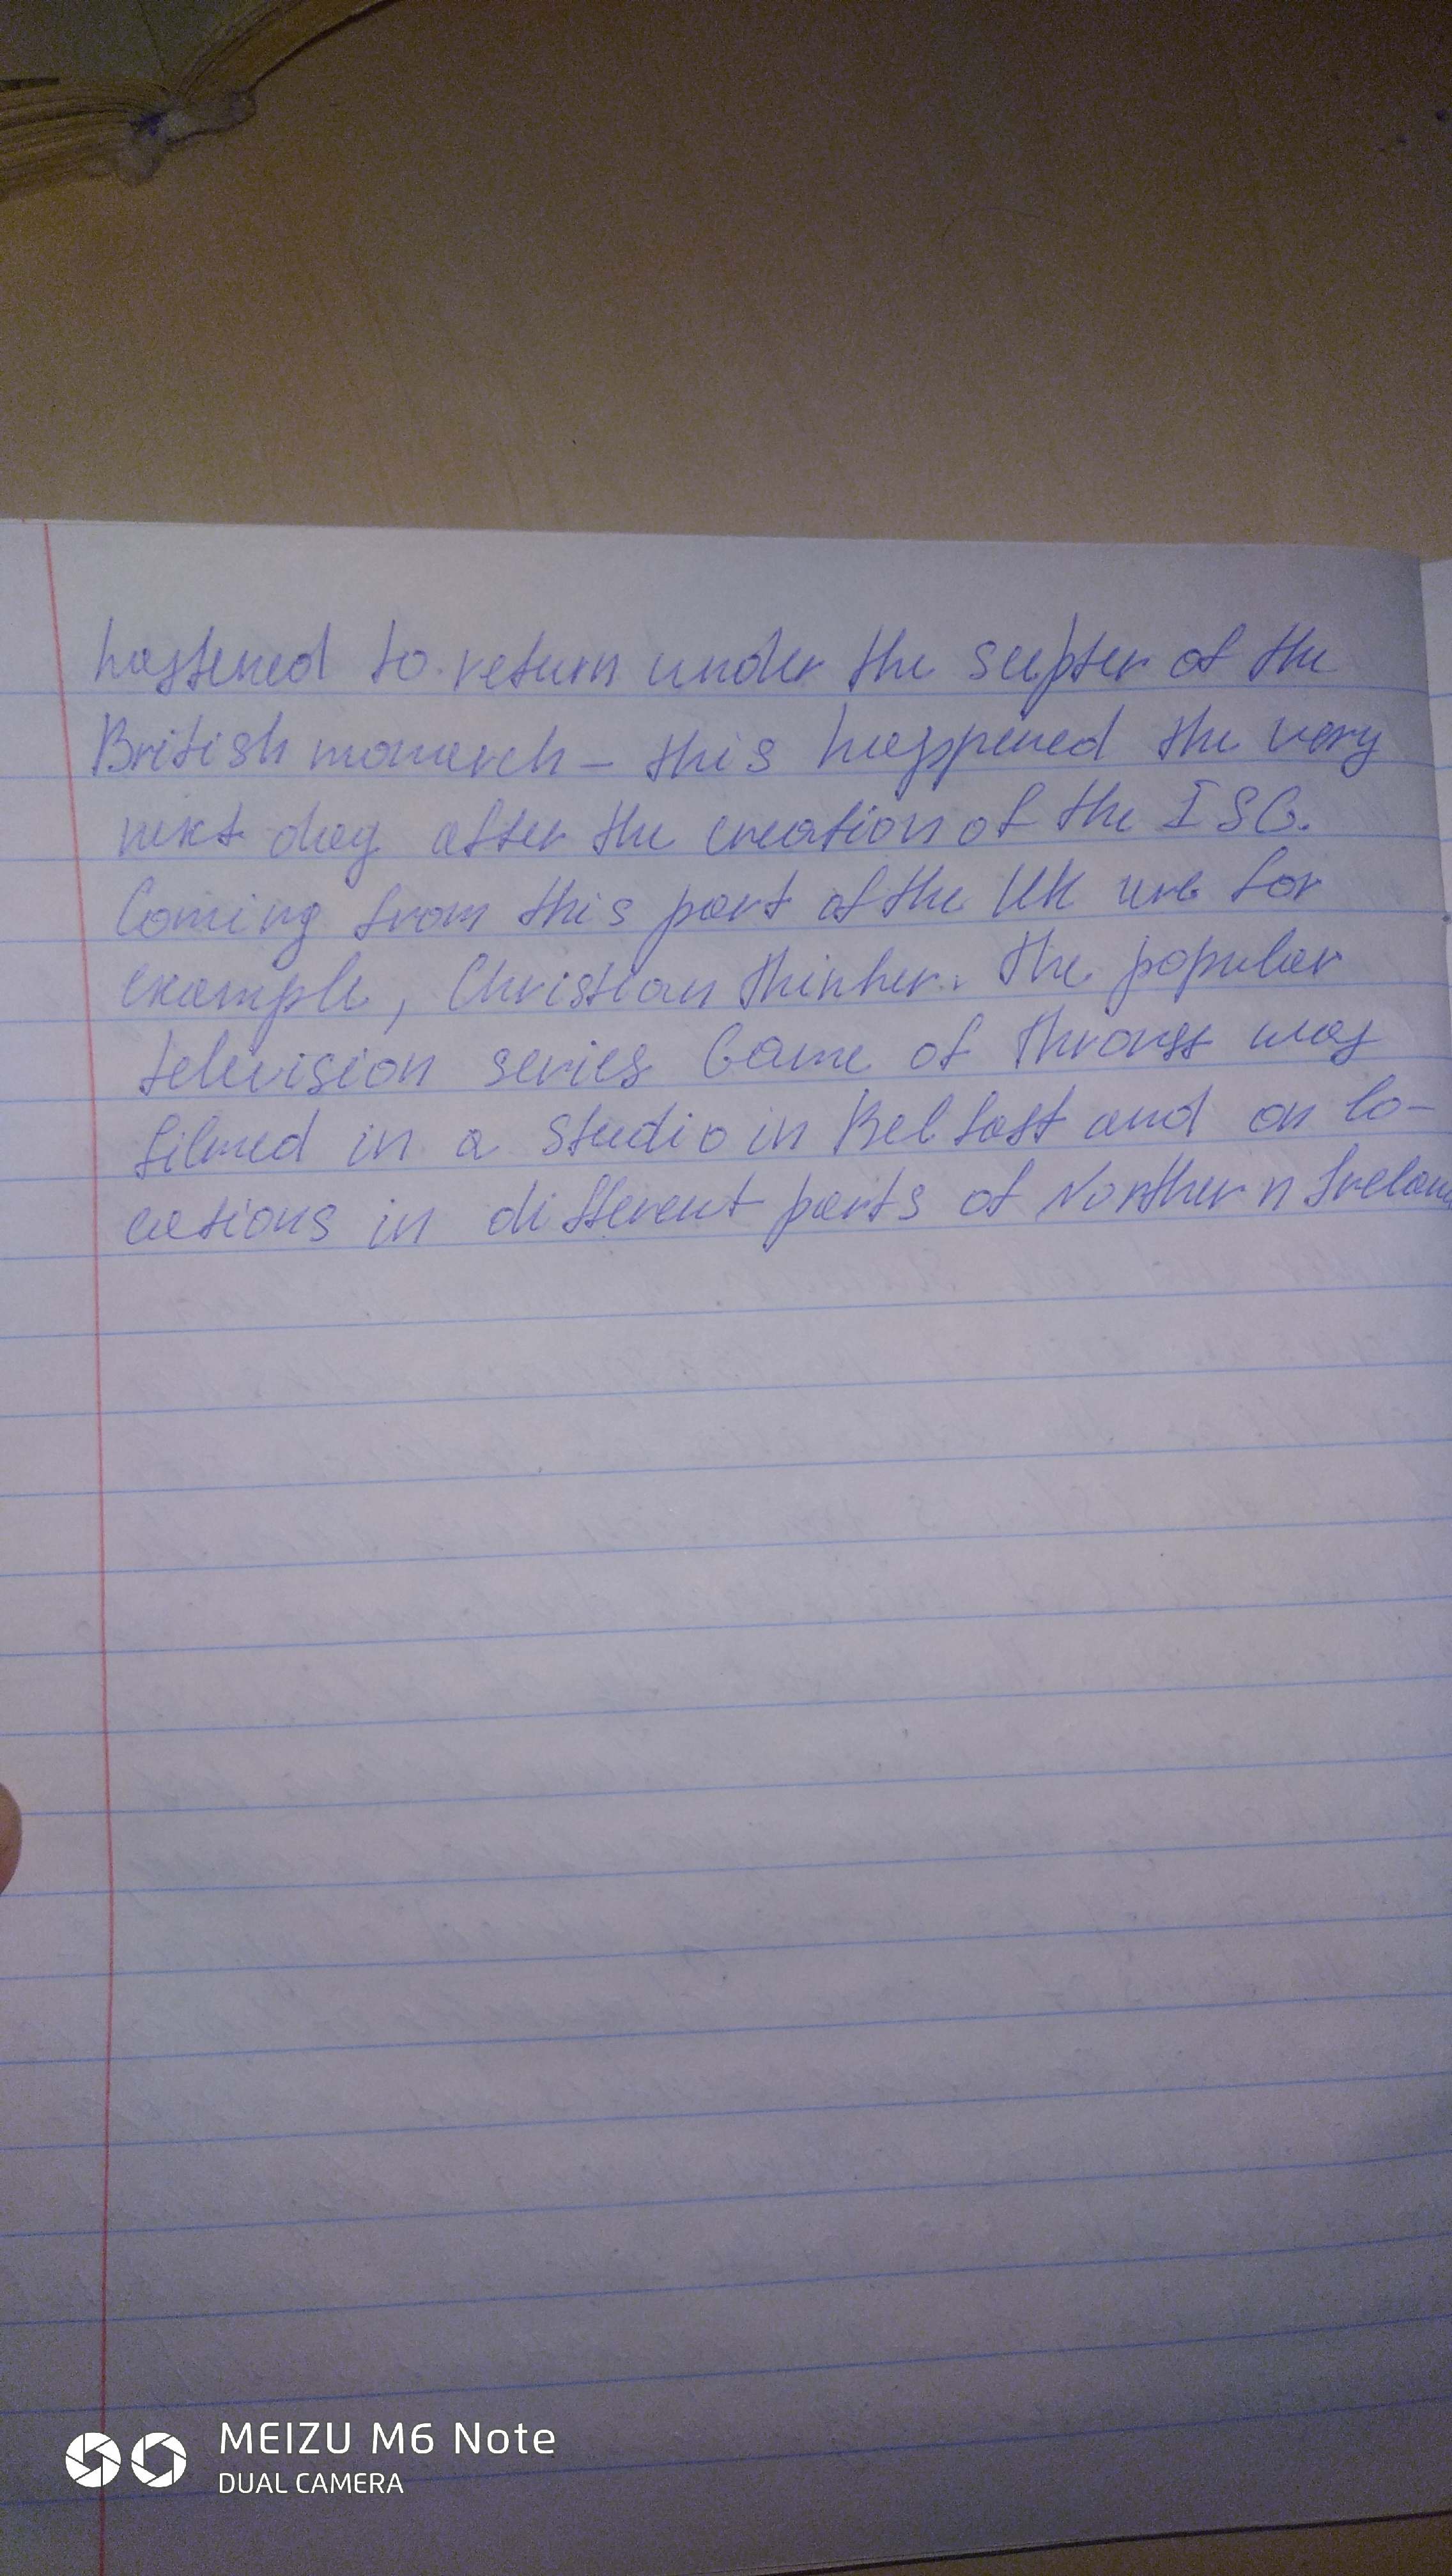 hastened to return under the scepter of the
British monarch – this happened the very
next day after the creation of the ISC.
Coming from this part of the UK are for
example, Christian thinker. The popular
television series Game of Thrones was
filmed in a studio in Belfast and on lo-
cations in different parts of Northern Irelan
MEIZU M6 Note
DUAL CAMERA